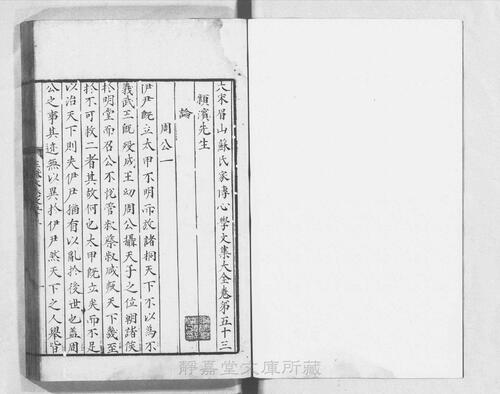 大宋眉山蘇氏家傳心學文集大全卷第五十三
潁濱先生
論
周公一
伊尹既立太甲不明而放諸桐天下不以為不
義武王既殁成王幼周公攝天子之位朝諸侯
於明堂而召公不悦管叔蔡叔咸叛天下幾至
於不可救二者其故何也太甲既立矣而不足
以治天下則夫伊尹猶有以亂於後世也蓋周
公之事其迹無以異於伊尹然天下之人舉皆
靜嘉堂文庫所藏